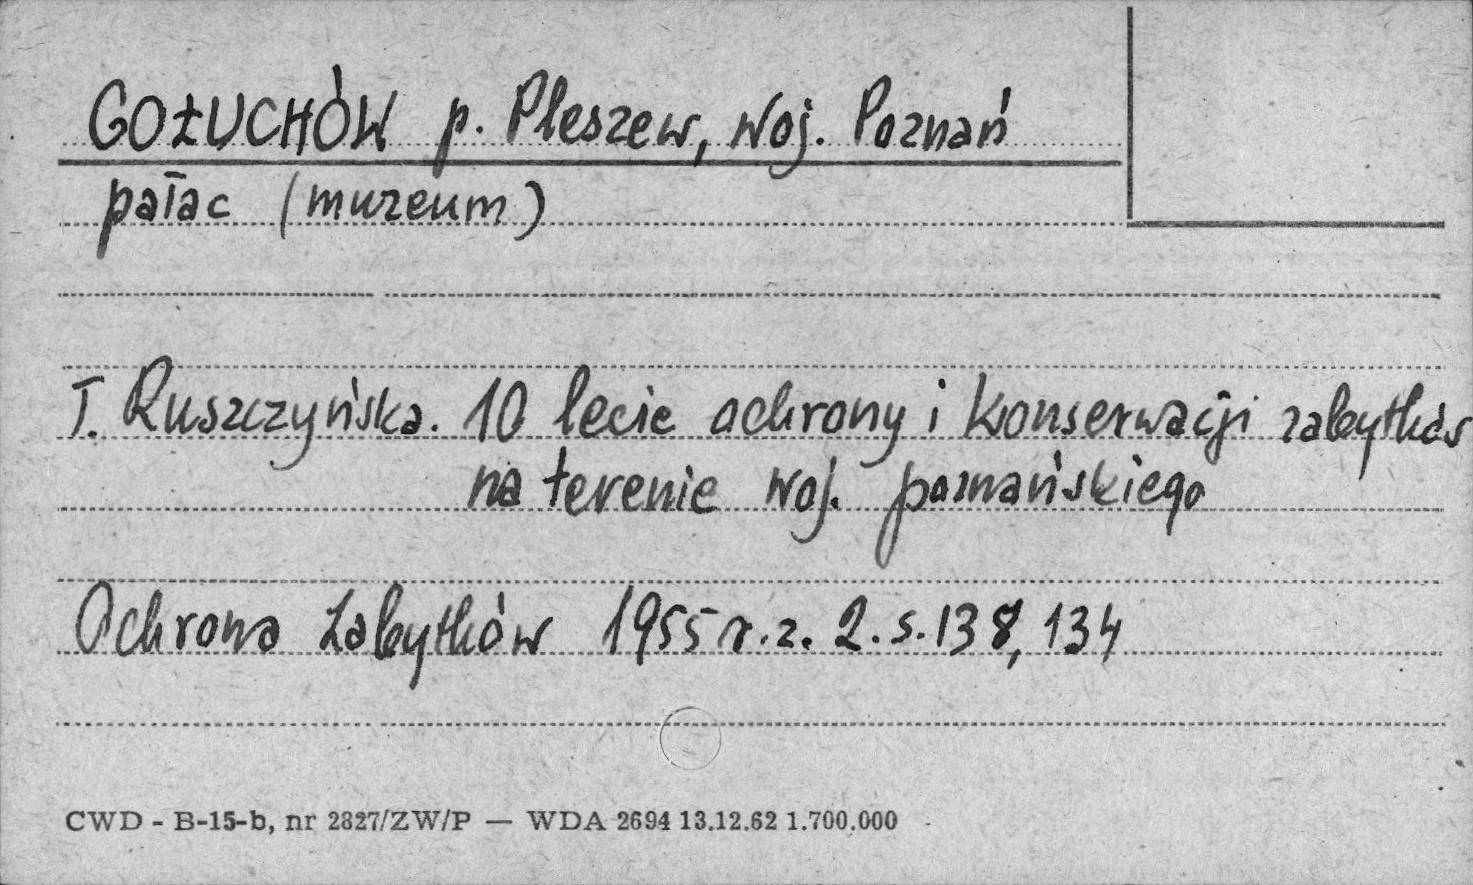 GOŁUCHÓW p. Pleszew, woj. Poznań
pałac (muzeum)
T. Ruszczyńska. 10 lecie ochrony i konserwacji zabytków
na terenie woj. poznańskiego
Ochrona Zabytków 1955 r. z. 2. s. 138, 134
CWD - B-15-b, nr 2827/ZW/P — WDA 2694 13.12.62 1.700.000